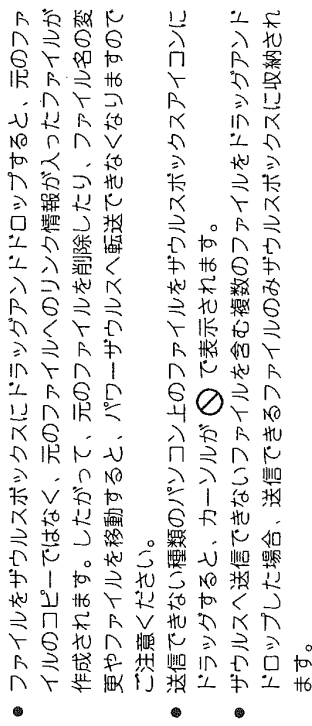 ● ファイルをザウルスボックスにドラッグアンドドロップすると、元のファ
イルのコピーではなく、元のファイルへのリンク情報が入ったファイルが
作成されます。したがって、元のファイルを削除したり、ファイル名の変
更やファイルを移動すると、パワーザウルスへ転送できなくなりますので
ご注意ください。
● 送信できない種類のパソコン上のファイルをザウルスボックスアイコンに
ドラッグすると、カーソルが🚫で表示されます。
● ザウルスへ送信できないファイルを含む複数のファイルをドラッグアンド
ドロップした場合、送信できるファイルのみザウルスボックスに収納され
ます。